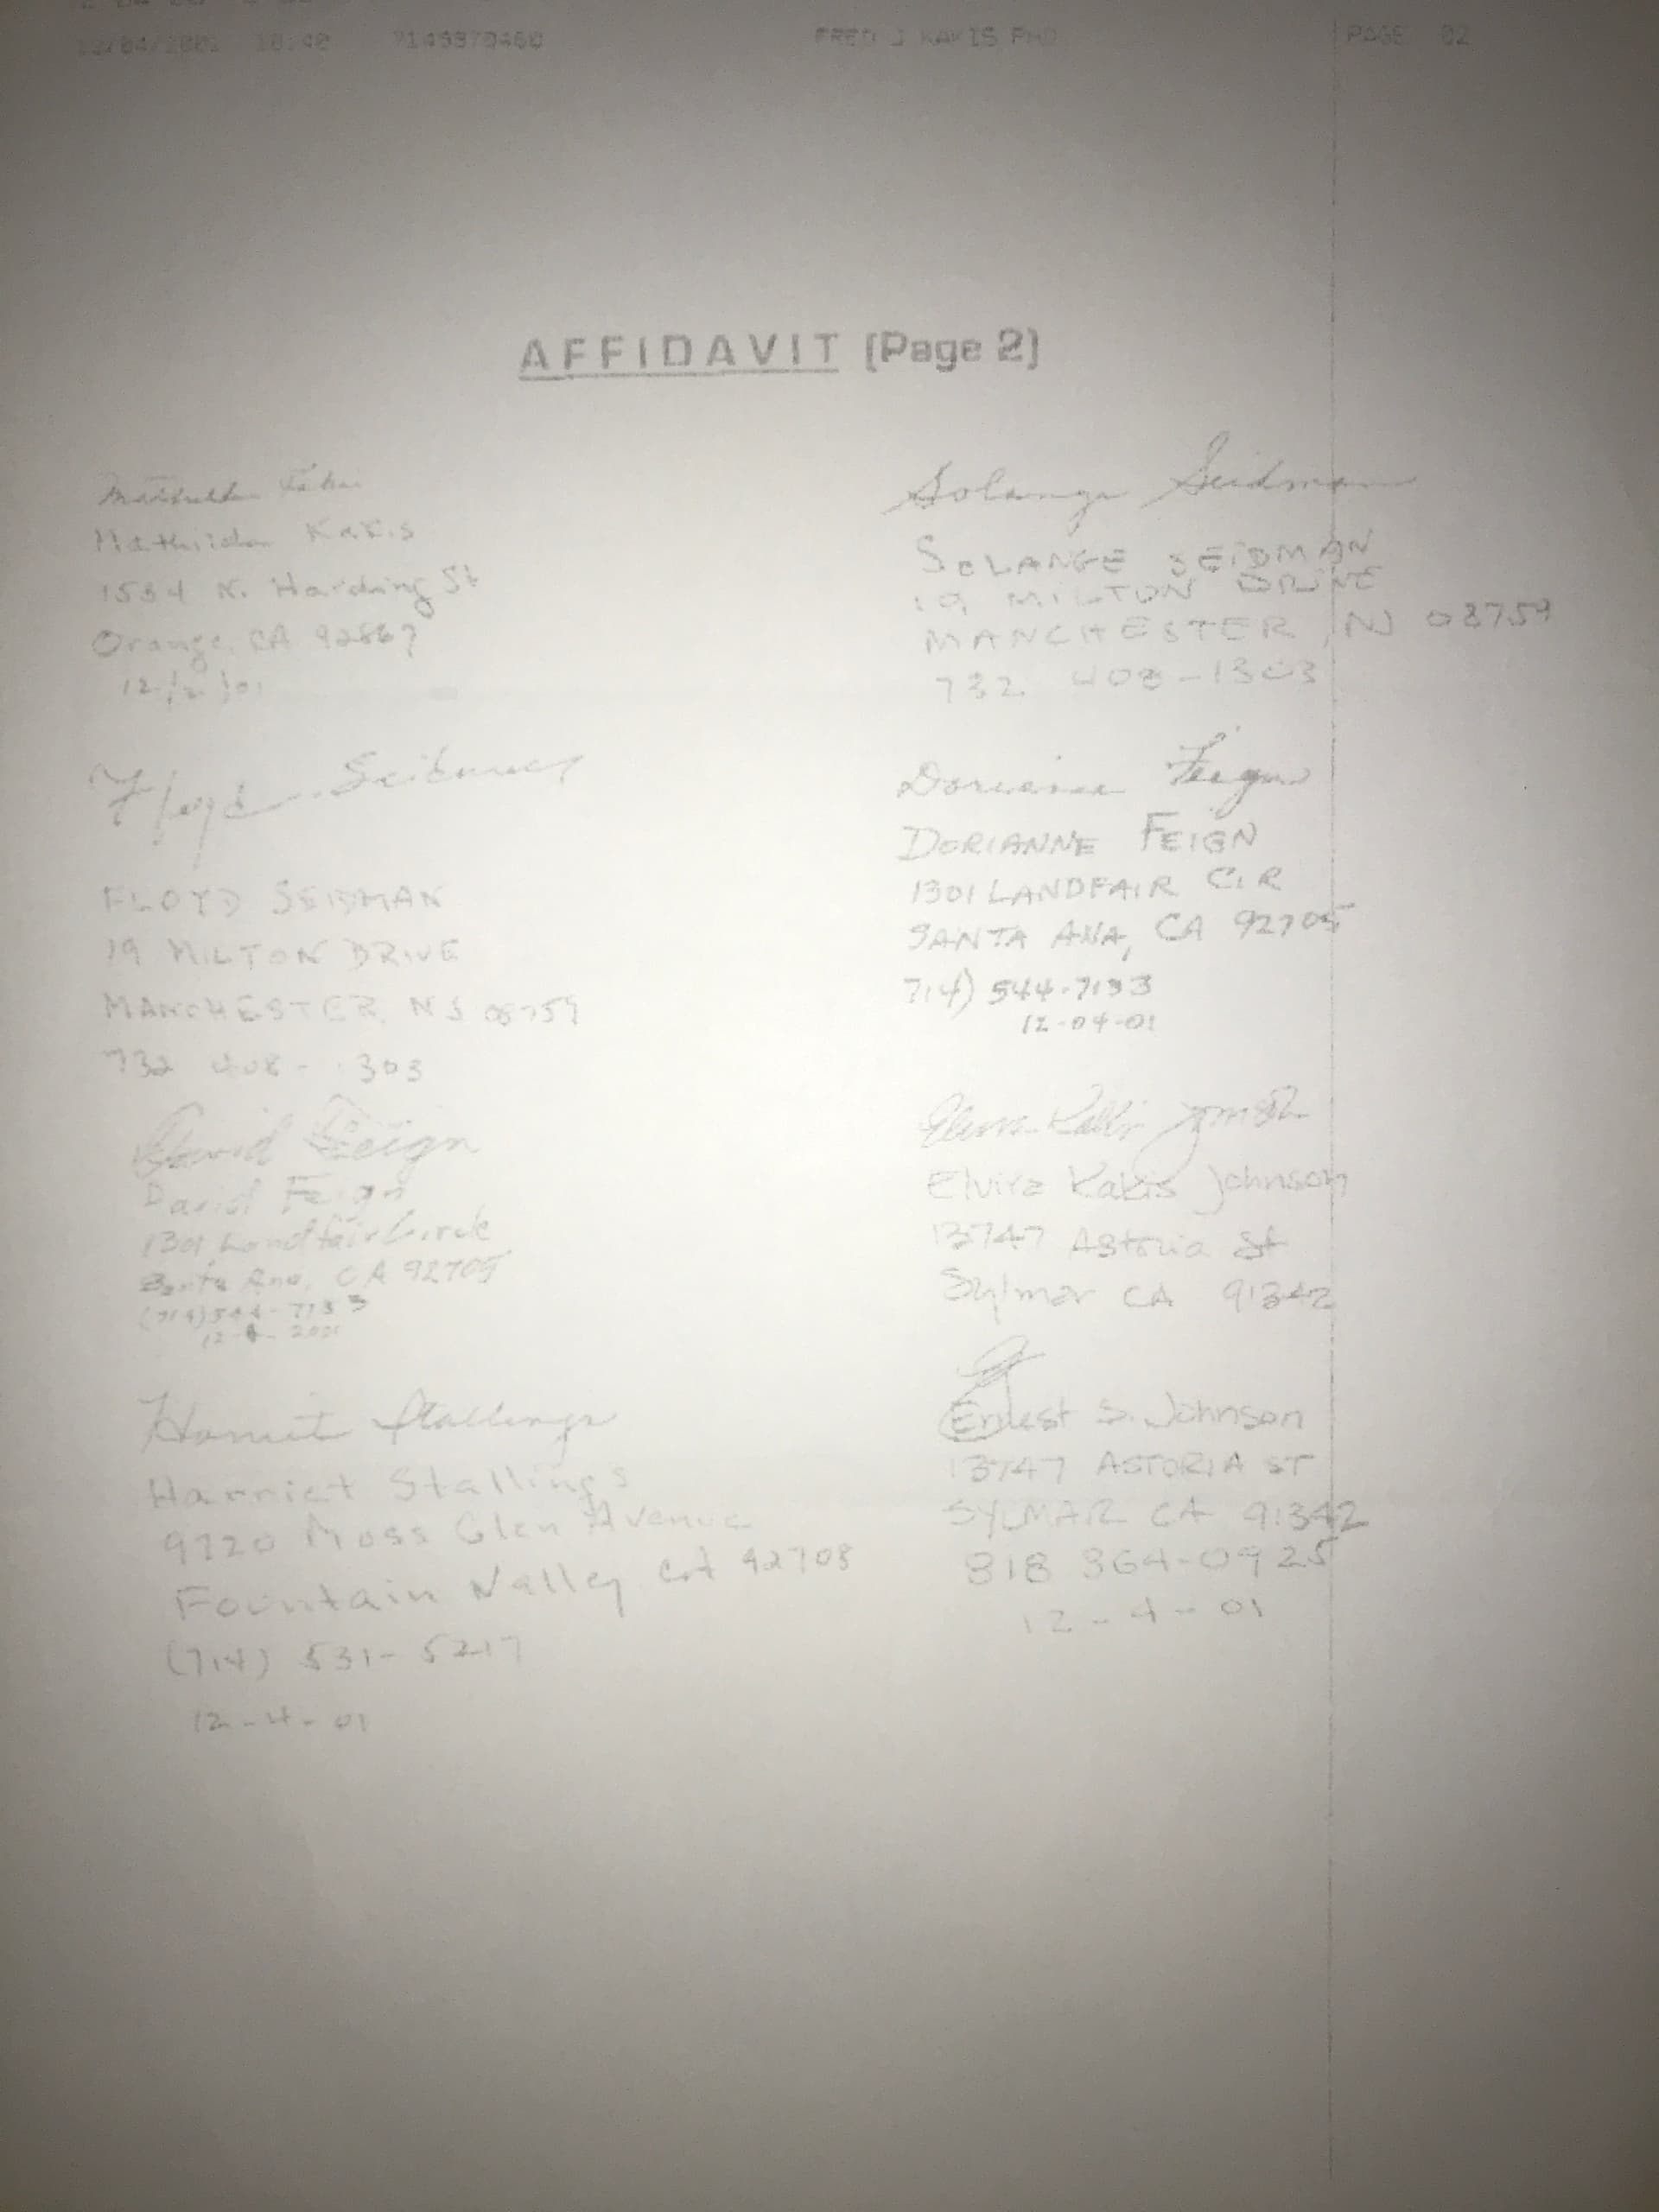 12/04/2001 10:40 7149979460 FRED J KAKIS PHD PAGE 02
AFFIDAVIT (Page 2)
Mathilda Kakis
1534 N. Harding St
Orange, CA 92867
Floyd Seidman
FLOYD SEIDMAN
19 MILTON DRIVE
MANCHESTER, NJ 08759
732 408-1303
David Feign
David Feign
1301 Landfair Circle
Santa Ana, CA 92705
(714) 544-7133
12-4-2001
Harriet Stallings
Harriet Stallings
9720 Moss Glen Avenue
Fountain Valley CA 92708
(714) 531-5217
12-4-01
Solange Seidman
SOLANGE SEIDMAN
19 MILTON DRIVE
MANCHESTER, NJ 08759
732 408-1303
Dorianne Feign
DORIANNE FEIGN
1301 LANDFAIR CIR
SANTA ANA, CA 92705
714) 544-7133
12-04-01
Elvira Kakis Johnson
Elvira Kakis Johnson
13747 Astoria St
Sylmar CA 91342
Ernest S. Johnson
13747 ASTORIA ST
SYLMAR CA 91342
818 364-0925
12-4-01